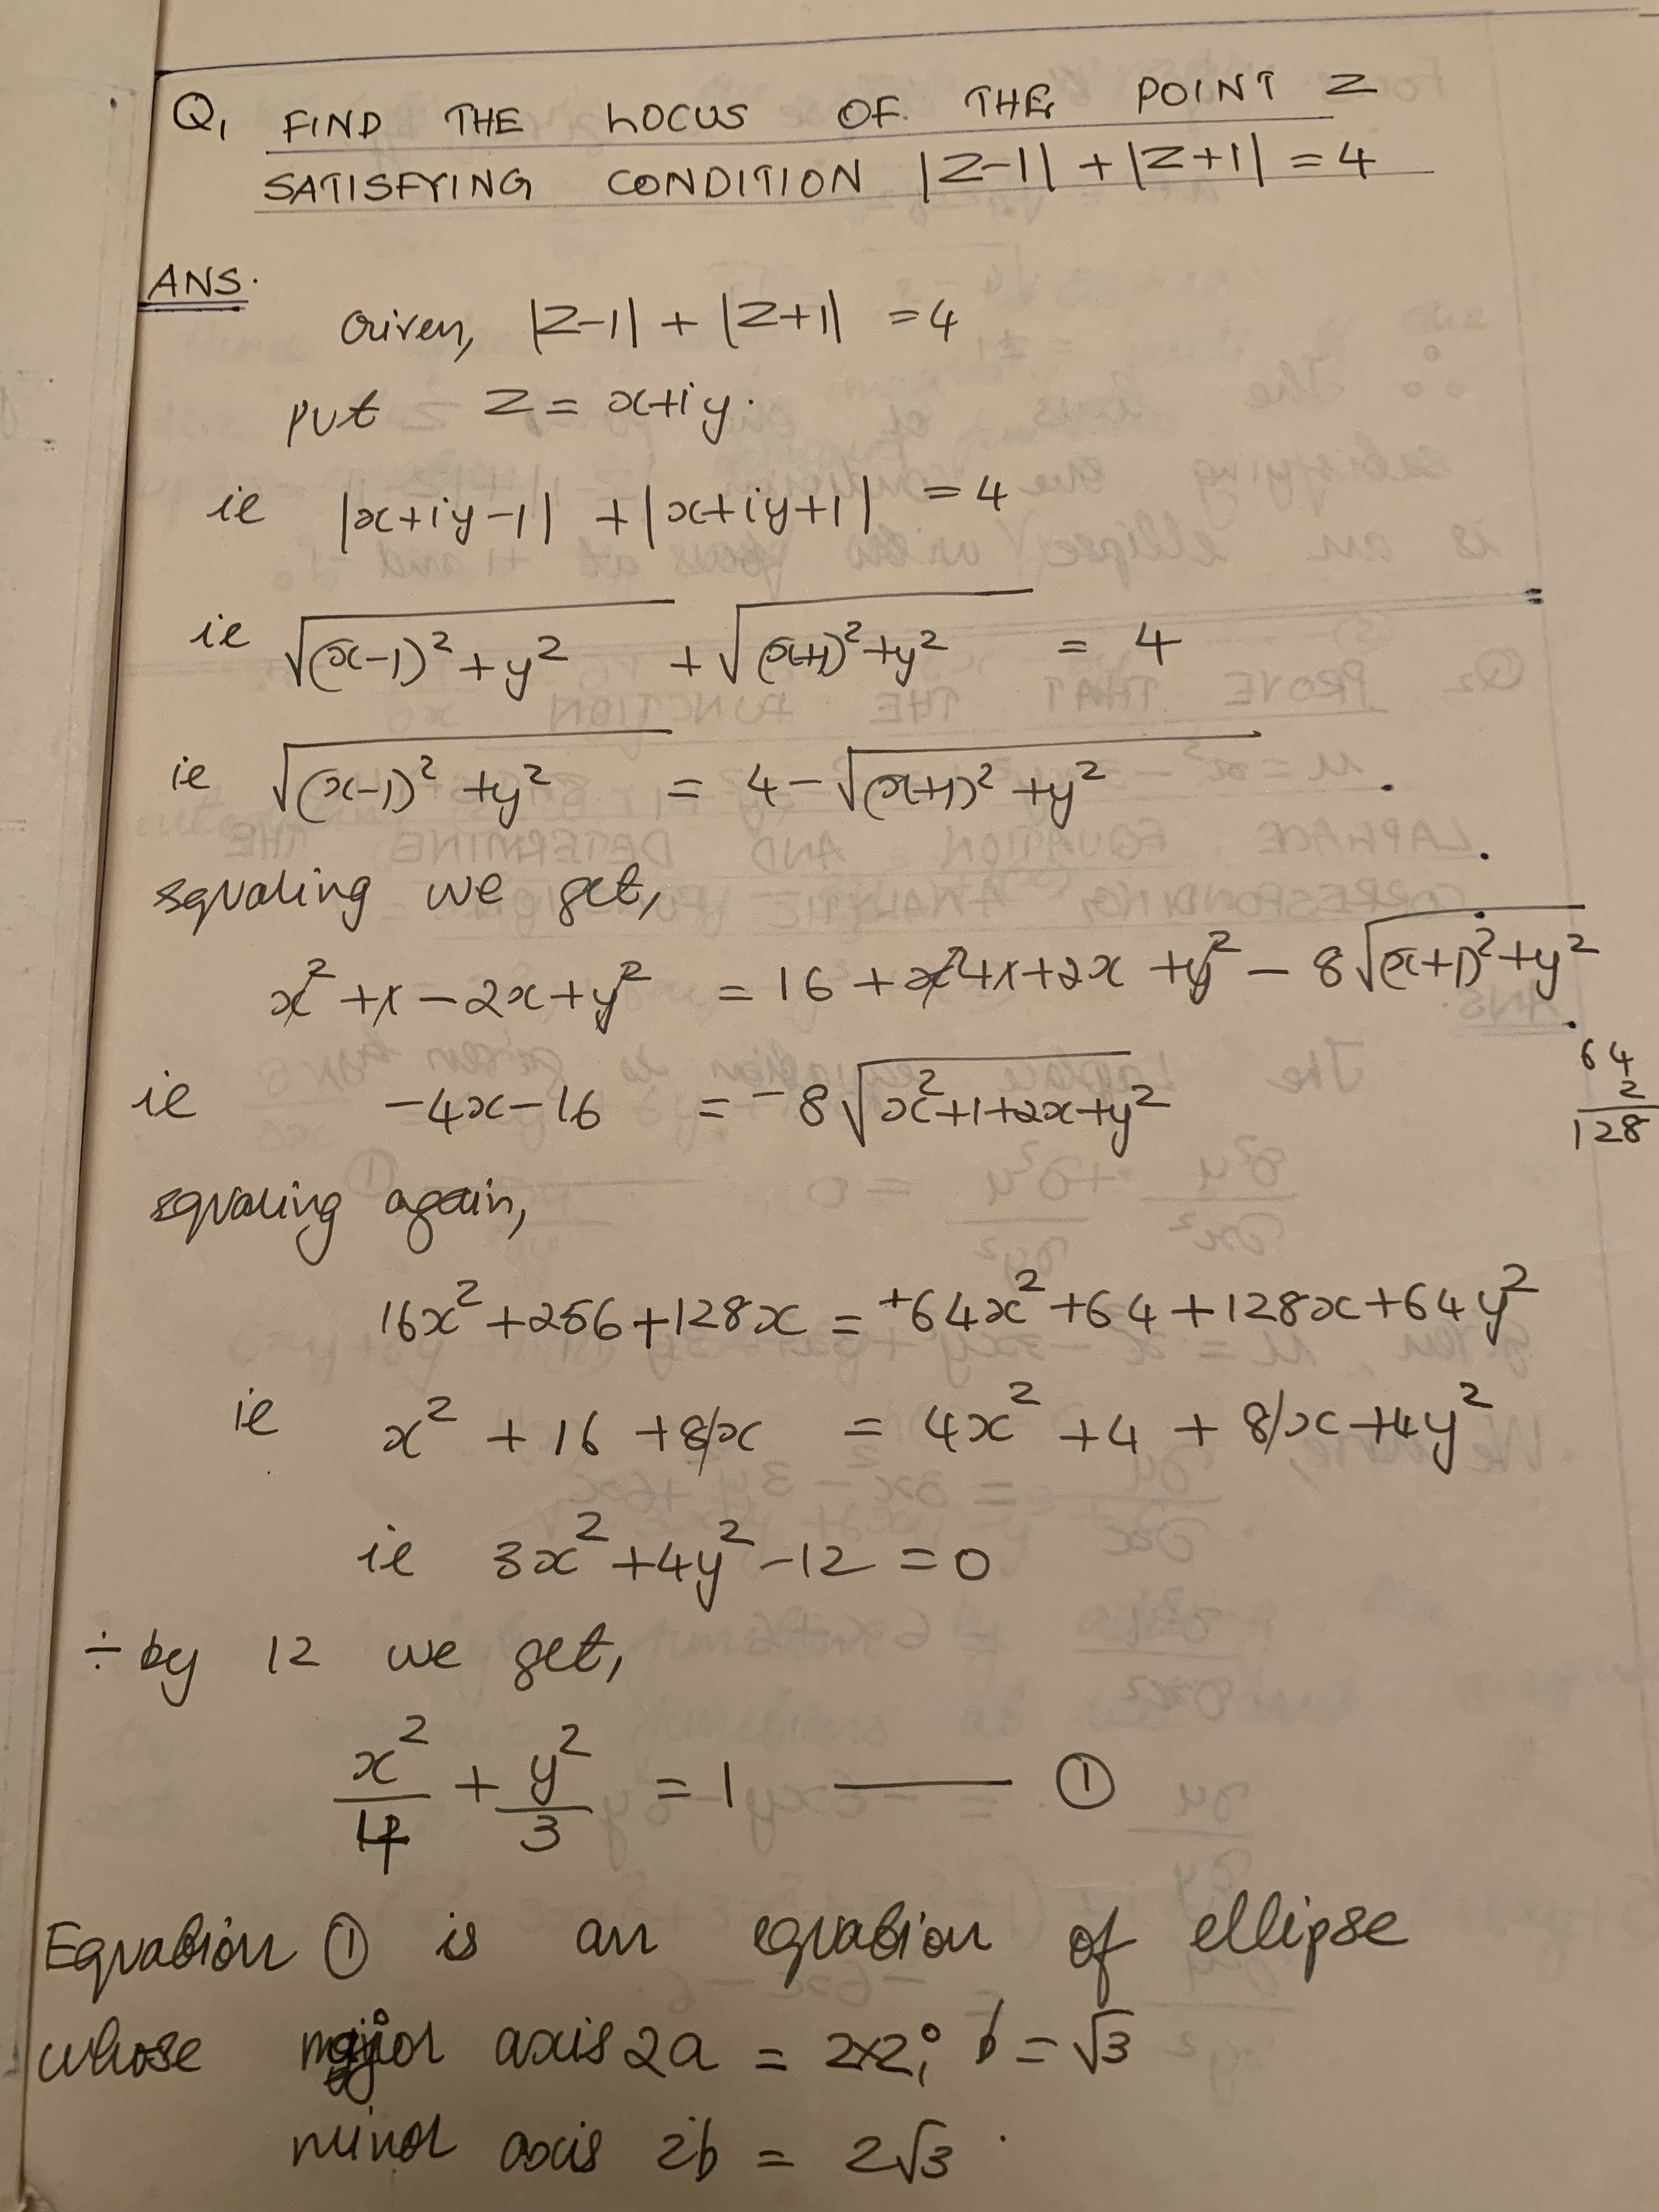 Q1 FIND THE LOCUS OF THE POINT Z
SATISFYING CONDITION |Z-1| + |Z+1| = 4
ANS.
Given, |Z-1| + |Z+1| = 4
put Z = x+iy.
ie |x+iy-1| + |x+iy+1| = 4
ie √((x-1)² + y²) + √((x+1)² + y²) = 4
ie √((x-1)² + y²) = 4 - √((x+1)² + y²)
squaring we get,
x² + 1 - 2x + y² = 16 + x² + 1 + 2x + y² - 8√((x+1)² + y²)
64
2
128
ie -4x-16 = -8√(x²+1+2x+y²)
squaring again,
16x² + 256 + 128x = +64x² + 64 + 128x + 64y²
ie x² + 16 + 8x = 4x² + 4 + 8x + 4y²
ie 3x² + 4y² - 12 = 0
÷ by 12 we get,
x²/4 + y²/3 = 1 —— ①
Equation ① is an equation of ellipse
whose major axis 2a = 2×2; b = √3
minor axis 2b = 2√3.